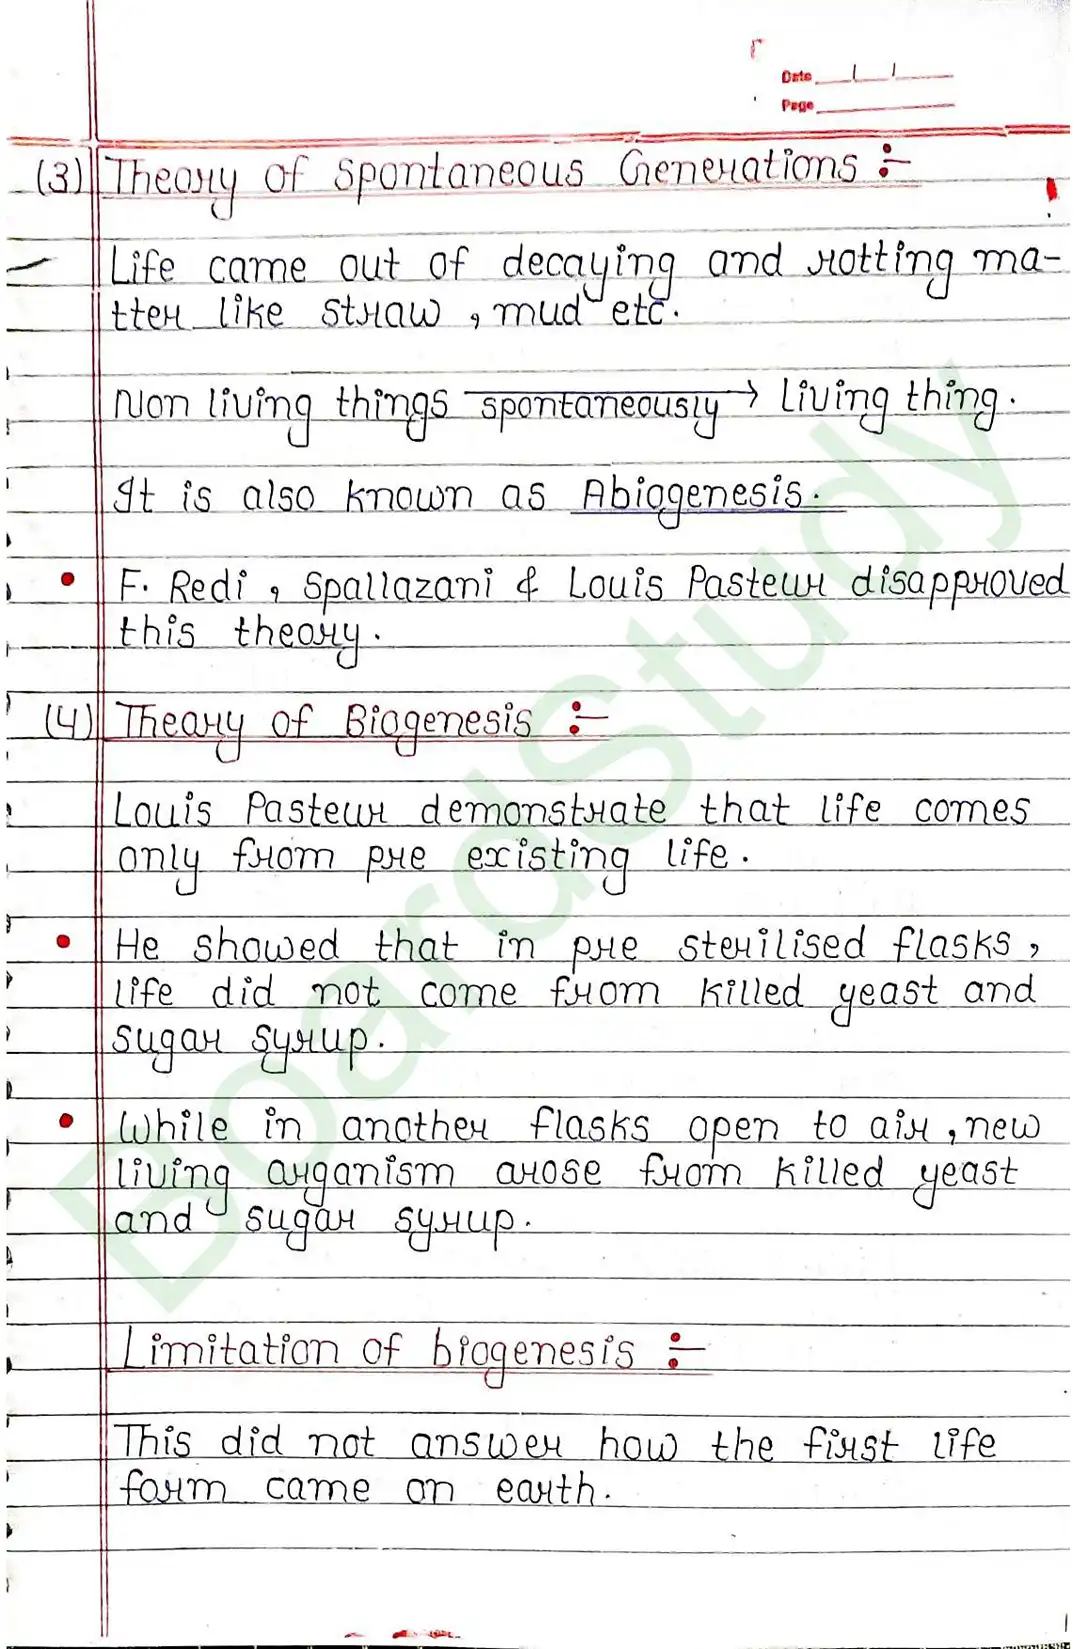 Date
Page
(3) Theory of Spontaneous Generations :-
Life came out of decaying and rotting ma-
tter like straw, mud etc.
Non living things spontaneously → living thing.
It is also known as Abiogenesis.
• F. Redi, Spallazani & Louis Pasteur disapproved
this theory.
(4) Theory of Biogenesis :-
Louis Pasteur demonstrate that life comes
only from pre existing life.
• He showed that in pre sterilised flasks,
life did not come from killed yeast and
sugar syrup.
• While in another flasks open to air, new
living organism arose from killed yeast
and sugar syrup.
Limitation of biogenesis :-
This did not answer how the first life
form came on earth.
BoardStudy